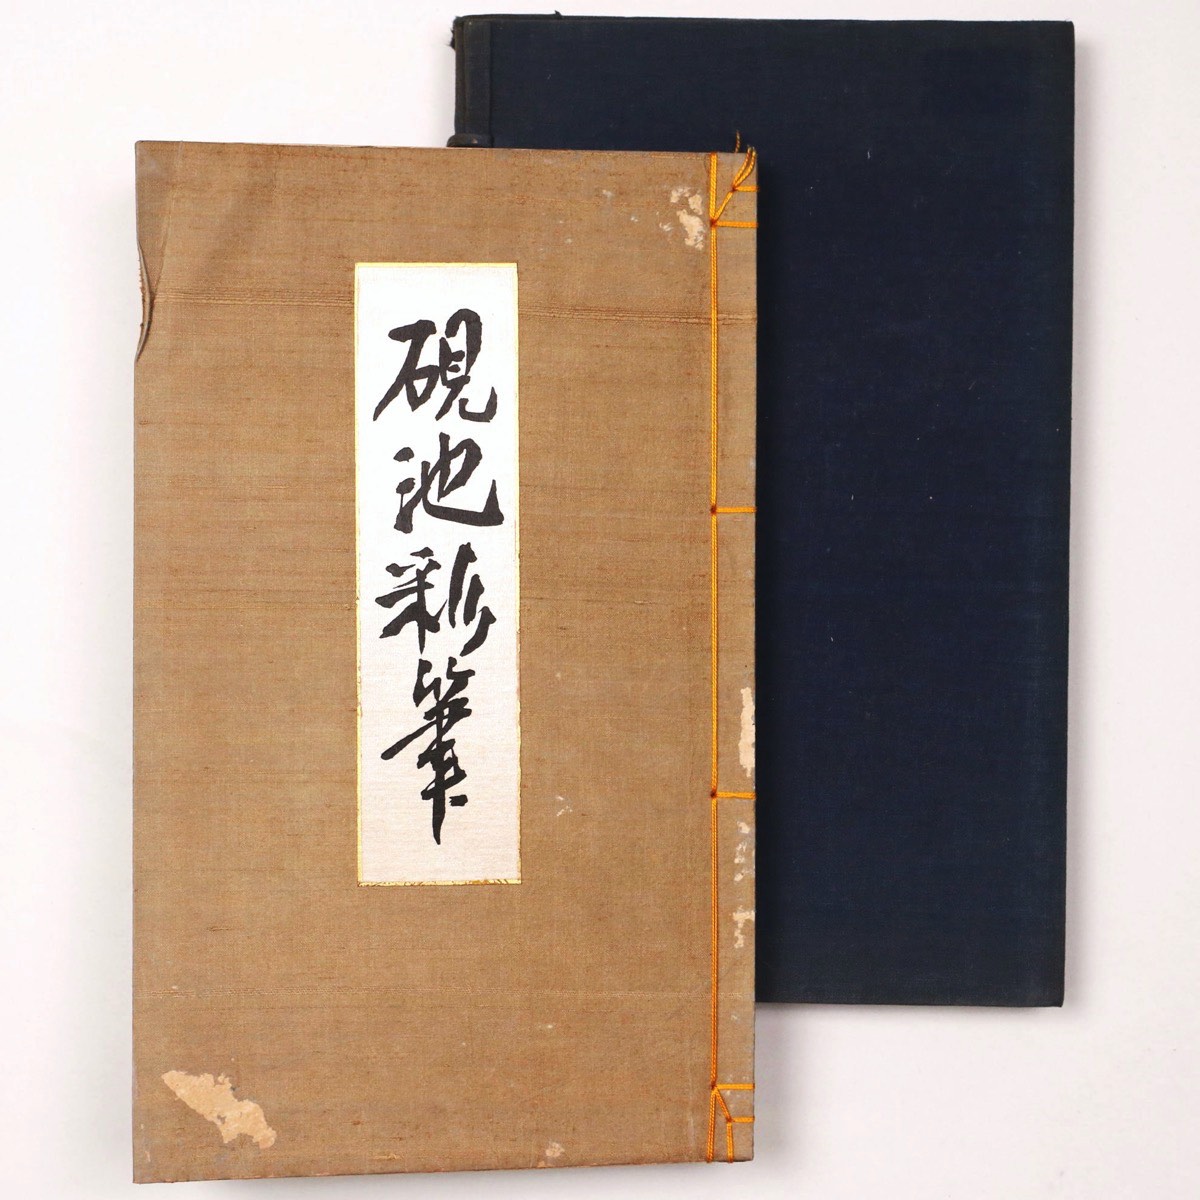 硯池彩筆